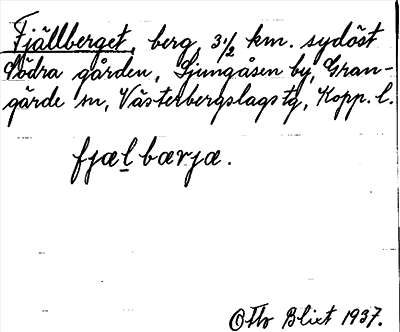 Fjällberget, berg, 3 1/2 km. sydöst
Södra gården, Ljungåsen by, Gran-
gärde sn, Västerbergslags tg, Kopp. l.
fjælbærjæ.
Otto Blixt 1937.